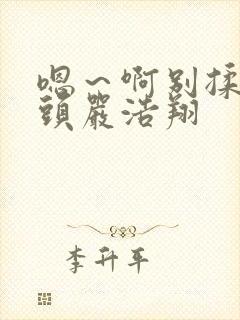 嗯～啊别揉
頭嚴浩翔
李升平